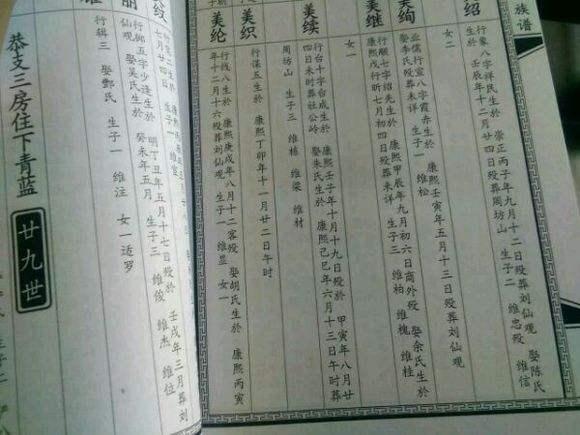 族谱
绍
行象八字祥民生於 崇正丙子年九月十二日殁葬刘仙观 娶陈氏
生於 壬辰年十二月廿四日殁葬周坊山 生子二 维忠殁 维信
女二
美绚
业儒行宣八字霞赤生於 康熙壬寅年五月十三日殁葬刘仙观
娶李氏殁葬未详 生子一 维松
美继
行颙七字绍先生於 康熙甲辰年九月初六日商外殁 娶余氏生於
康熙戊行昕七月初四日殁葬未详 生子三 维柏 维槐 维桂
女一
美续
行台十字台成生於 康熙壬子年十月十九日殁於 甲寅年八月廿
四日未时葬社公岭 娶朱氏生於 康熙己巳年六月十三日午时葬
周坊山 生子三 维栋 维梁 维材
美织
行谋五生於 康熙丁卯年十一月廿二日午时
美纶
行线八生於 康熙庚戌年八月十二客殁 娶胡氏生於 康熙丙寅
年十二月十六殁葬刘仙观 生子一 维显 女一
纹
丽
行郷五字少逵生於 明丁丑年五月十七日殁於 壬戌年三月葬刘
仙观 娶吴氏生於 癸未年五月 生子三 维俊 维杰 维位
行辑三 娶鄷氏 生子一 维注 女一适罗
恭支三房住下青蓝
廿九世